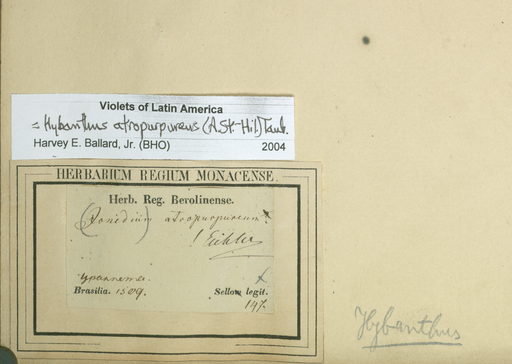 Violets of Latin America
= Hybanthus atropurpureus (A.St.-Hil.) Taub.
Harvey E. Ballard, Jr. (BHO) 2004
HERBARIUM REGIUM MONACENSE.
Herb. Reg. Berolinense.
(Jonidium) atropurpureum
! Eichler
Brasilia. 1509. Sellow legit.
147.
Hybanthus